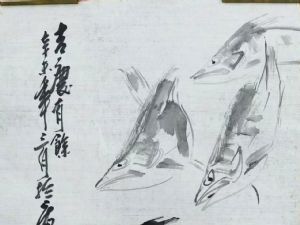 吉慶有餘
辛未年三月